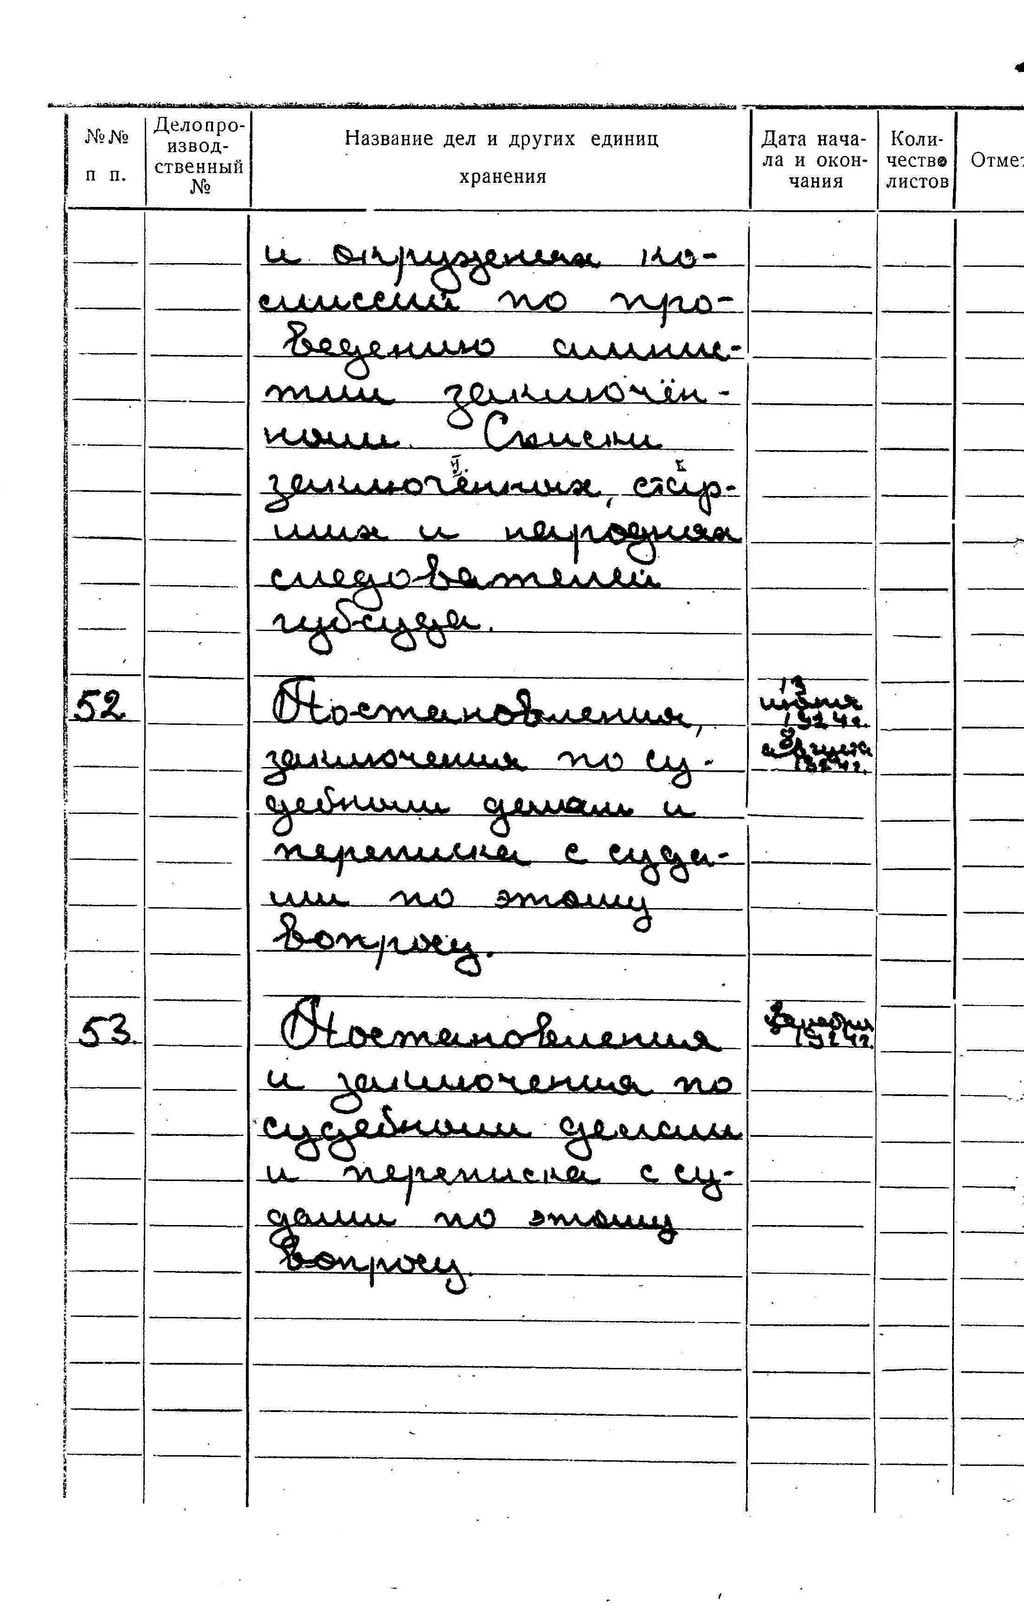 №№
п п.
Делопро-
извод-
ственный
№
Название дел и других единиц
хранения
Дата нача-
ла и окон-
чания
Коли-
чество
листов
Отмет
и окружения ко-
миссий по про-
ведению амнис-
тии заключён-
ными. Списки
заключённых, стар-
ших и народных
следователей
губсуда.
52
Постановления,
заключения по су-
дебным делам и
переписка с суда-
ми по этому
вопросу.
13
1924 г.
8
августа
1924 г.
53.
Постановления
и заключения по
судебным делам
и переписка с су-
дами по этому
вопросу.
1924 г.